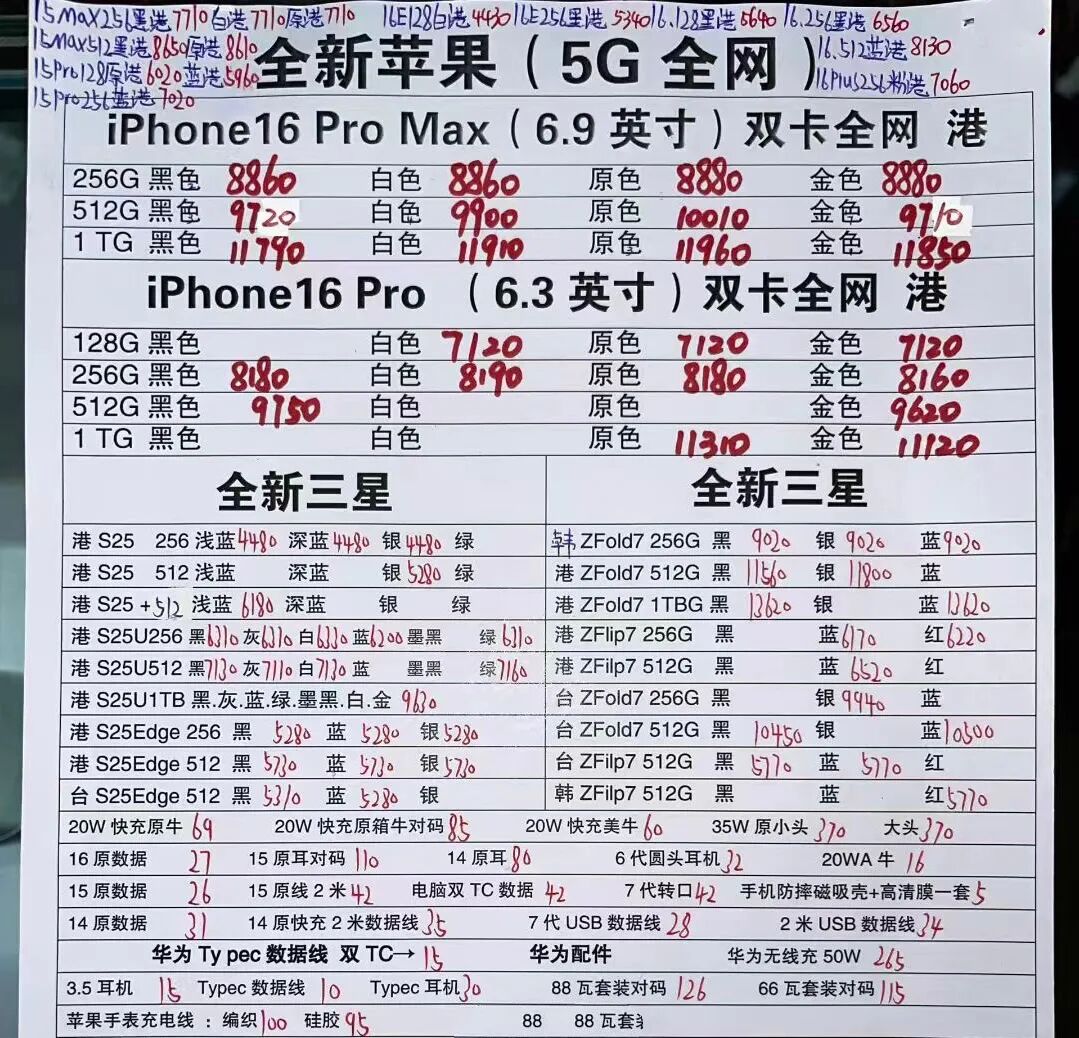 15Max251黑港7710白港7710原港7710 16E128白港4430 16E256黑港5340 16.128黑港5640 16.256黑港6560
15Max512黑港8650原港8610 16.512蓝港8130
15Pro128原港6020蓝港5960 16Plus256粉港7060
15Pro256蓝港7020
全新苹果（5G 全网）
iPhone16 Pro Max（6.9 英寸）双卡全网 港
256G 黑色 8860 白色 8860 原色 8880 金色 8880
512G 黑色 9720 白色 9900 原色 10010 金色 9710
1 TG 黑色 11790 白色 11910 原色 11960 金色 11850
iPhone16 Pro （6.3 英寸）双卡全网 港
128G 黑色 白色 7120 原色 7120 金色 7120
256G 黑色 8180 白色 8190 原色 8180 金色 8160
512G 黑色 9750 白色 原色 金色 9620
1 TG 黑色 白色 原色 11310 金色 11120
全新三星
港 S25 256 浅蓝4480 深蓝4480 银4480 绿
港 S25 512 浅蓝 深蓝 银5280 绿
港 S25 +512 浅蓝 6180 深蓝 银 绿
港 S25U256 黑6310灰6310白6330蓝6200墨黑 绿6310
港 S25U512 黑7130灰7110白7130蓝 墨黑 绿7160
港 S25U1TB 黑.灰.蓝.绿.墨黑.白.金 9630
港 S25Edge 256 黑 5280 蓝 5280 银5280
港 S25Edge 512 黑 5730 蓝 5730 银5730
台 S25Edge 512 黑 5310 蓝 5280 银
全新三星
韩 ZFold7 256G 黑 9020 银 9020 蓝9020
港 ZFold7 512G 黑 11560 银 11800 蓝
港 ZFold7 1TBG 黑 13620 银 蓝13620
港 ZFlip7 256G 黑 蓝6170 红6220
港 ZFilp7 512G 黑 蓝 6520 红
台 ZFold7 256G 黑 银9940 蓝
台 ZFold7 512G 黑 10450 银 蓝10500
台 ZFilp7 512G 黑 5770 蓝 5770 红
韩 ZFilp7 512G 黑 蓝 红5770
20W 快充原牛 69 20W 快充原箱牛对码85 20W 快充美牛 60 35W 原小头 370 大头370
16 原数据 27 15 原耳对码 110 14 原耳80 6 代圆头耳机32 20WA 牛 16
15 原数据 26 15 原线 2 米42 电脑双 TC 数据 42 7 代转口42 手机防摔磁吸壳+高清膜一套5
14 原数据 31 14 原快充 2 米数据线35 7 代 USB 数据线 28 2 米 USB 数据线34
华为 Ty pec 数据线 双 TC→ 15 华为配件 华为无线充 50W 265
3.5 耳机 15 Typec 数据线 10 Typec 耳机30 88 瓦套装对码 126 66 瓦套装对码115
苹果手表充电线 ：编织100 硅胶95 88 88 瓦套